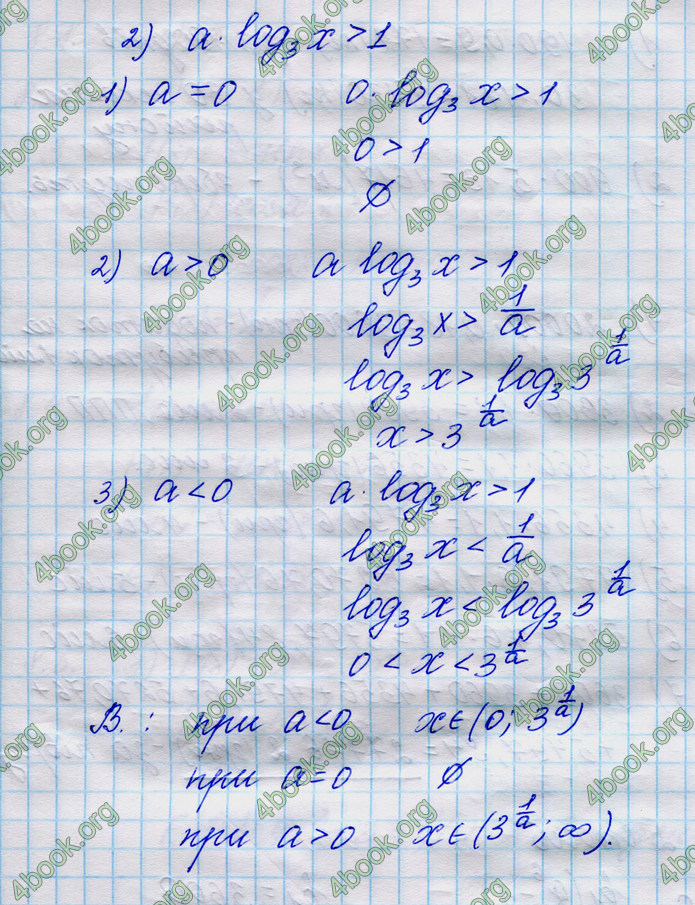 2) a · log₃ x > 1
1) a = 0 0 · log₃ x > 1
0 > 1
∅
2) a > 0 a log₃ x > 1
log₃ x > 1/a
log₃ x > log₃ 3^(1/a)
x > 3^(1/a)
3) a < 0 a · log₃ x > 1
log₃ x < 1/a
log₃ x < log₃ 3^(1/a)
0 < x < 3^(1/a)
В. : при a < 0 x ∈ (0; 3^(1/a))
при a = 0 ∅
при a > 0 x ∈ (3^(1/a); ∞).
4book.org